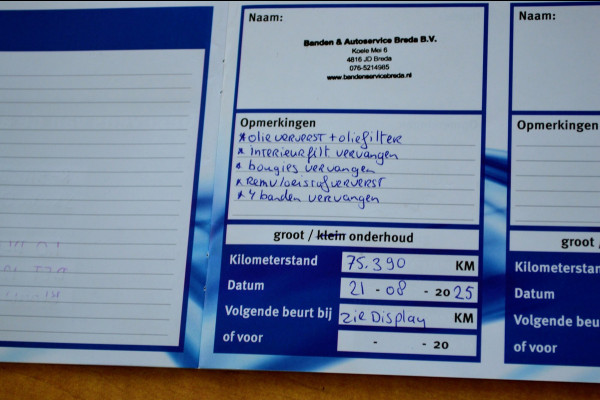 Naam:
Banden & Autoservice Breda B.V.
Koele Mei 6
4816 JD Breda
076-5214985
www.bandenservicebreda.nl
Opmerkingen
* olie ververst + oliefilter
* Interieurfilt vervangen
* bougies vervangen
* Remvloeistof ververst
* 4 banden vervangen
groot / klein onderhoud
Kilometerstand 75.390 KM
Datum 21 - 08 - 20 25
Volgende beurt bij zie Display KM
of voor - - 20
Naam:
Opmerkingen
groot /
Kilometerstan
Datum
Volgende beu
of voor